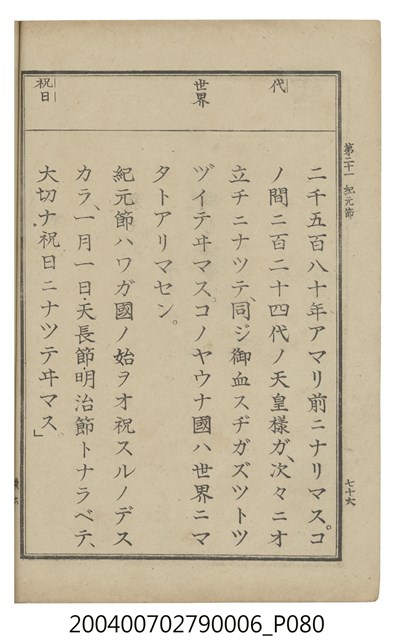 第二十一 紀元節
七十六
代
世界
祝日
二千五百八十年アマリ前ニナリマス。コ
ノ間ニ百二十四代ノ天皇樣ガ、次々ニオ
立チニナツテ、同ジ御血スヂガズツトツ
ヅイテヰマス。コノヤウナ國ハ世界ニマ
タトアリマセン。
紀元節ハワガ國ノ始ヲオ祝スルノデス
カラ、一月一日・天長節・明治節トナラベテ、
大切ナ祝日ニナツテヰマス。」
200400702790006_P080